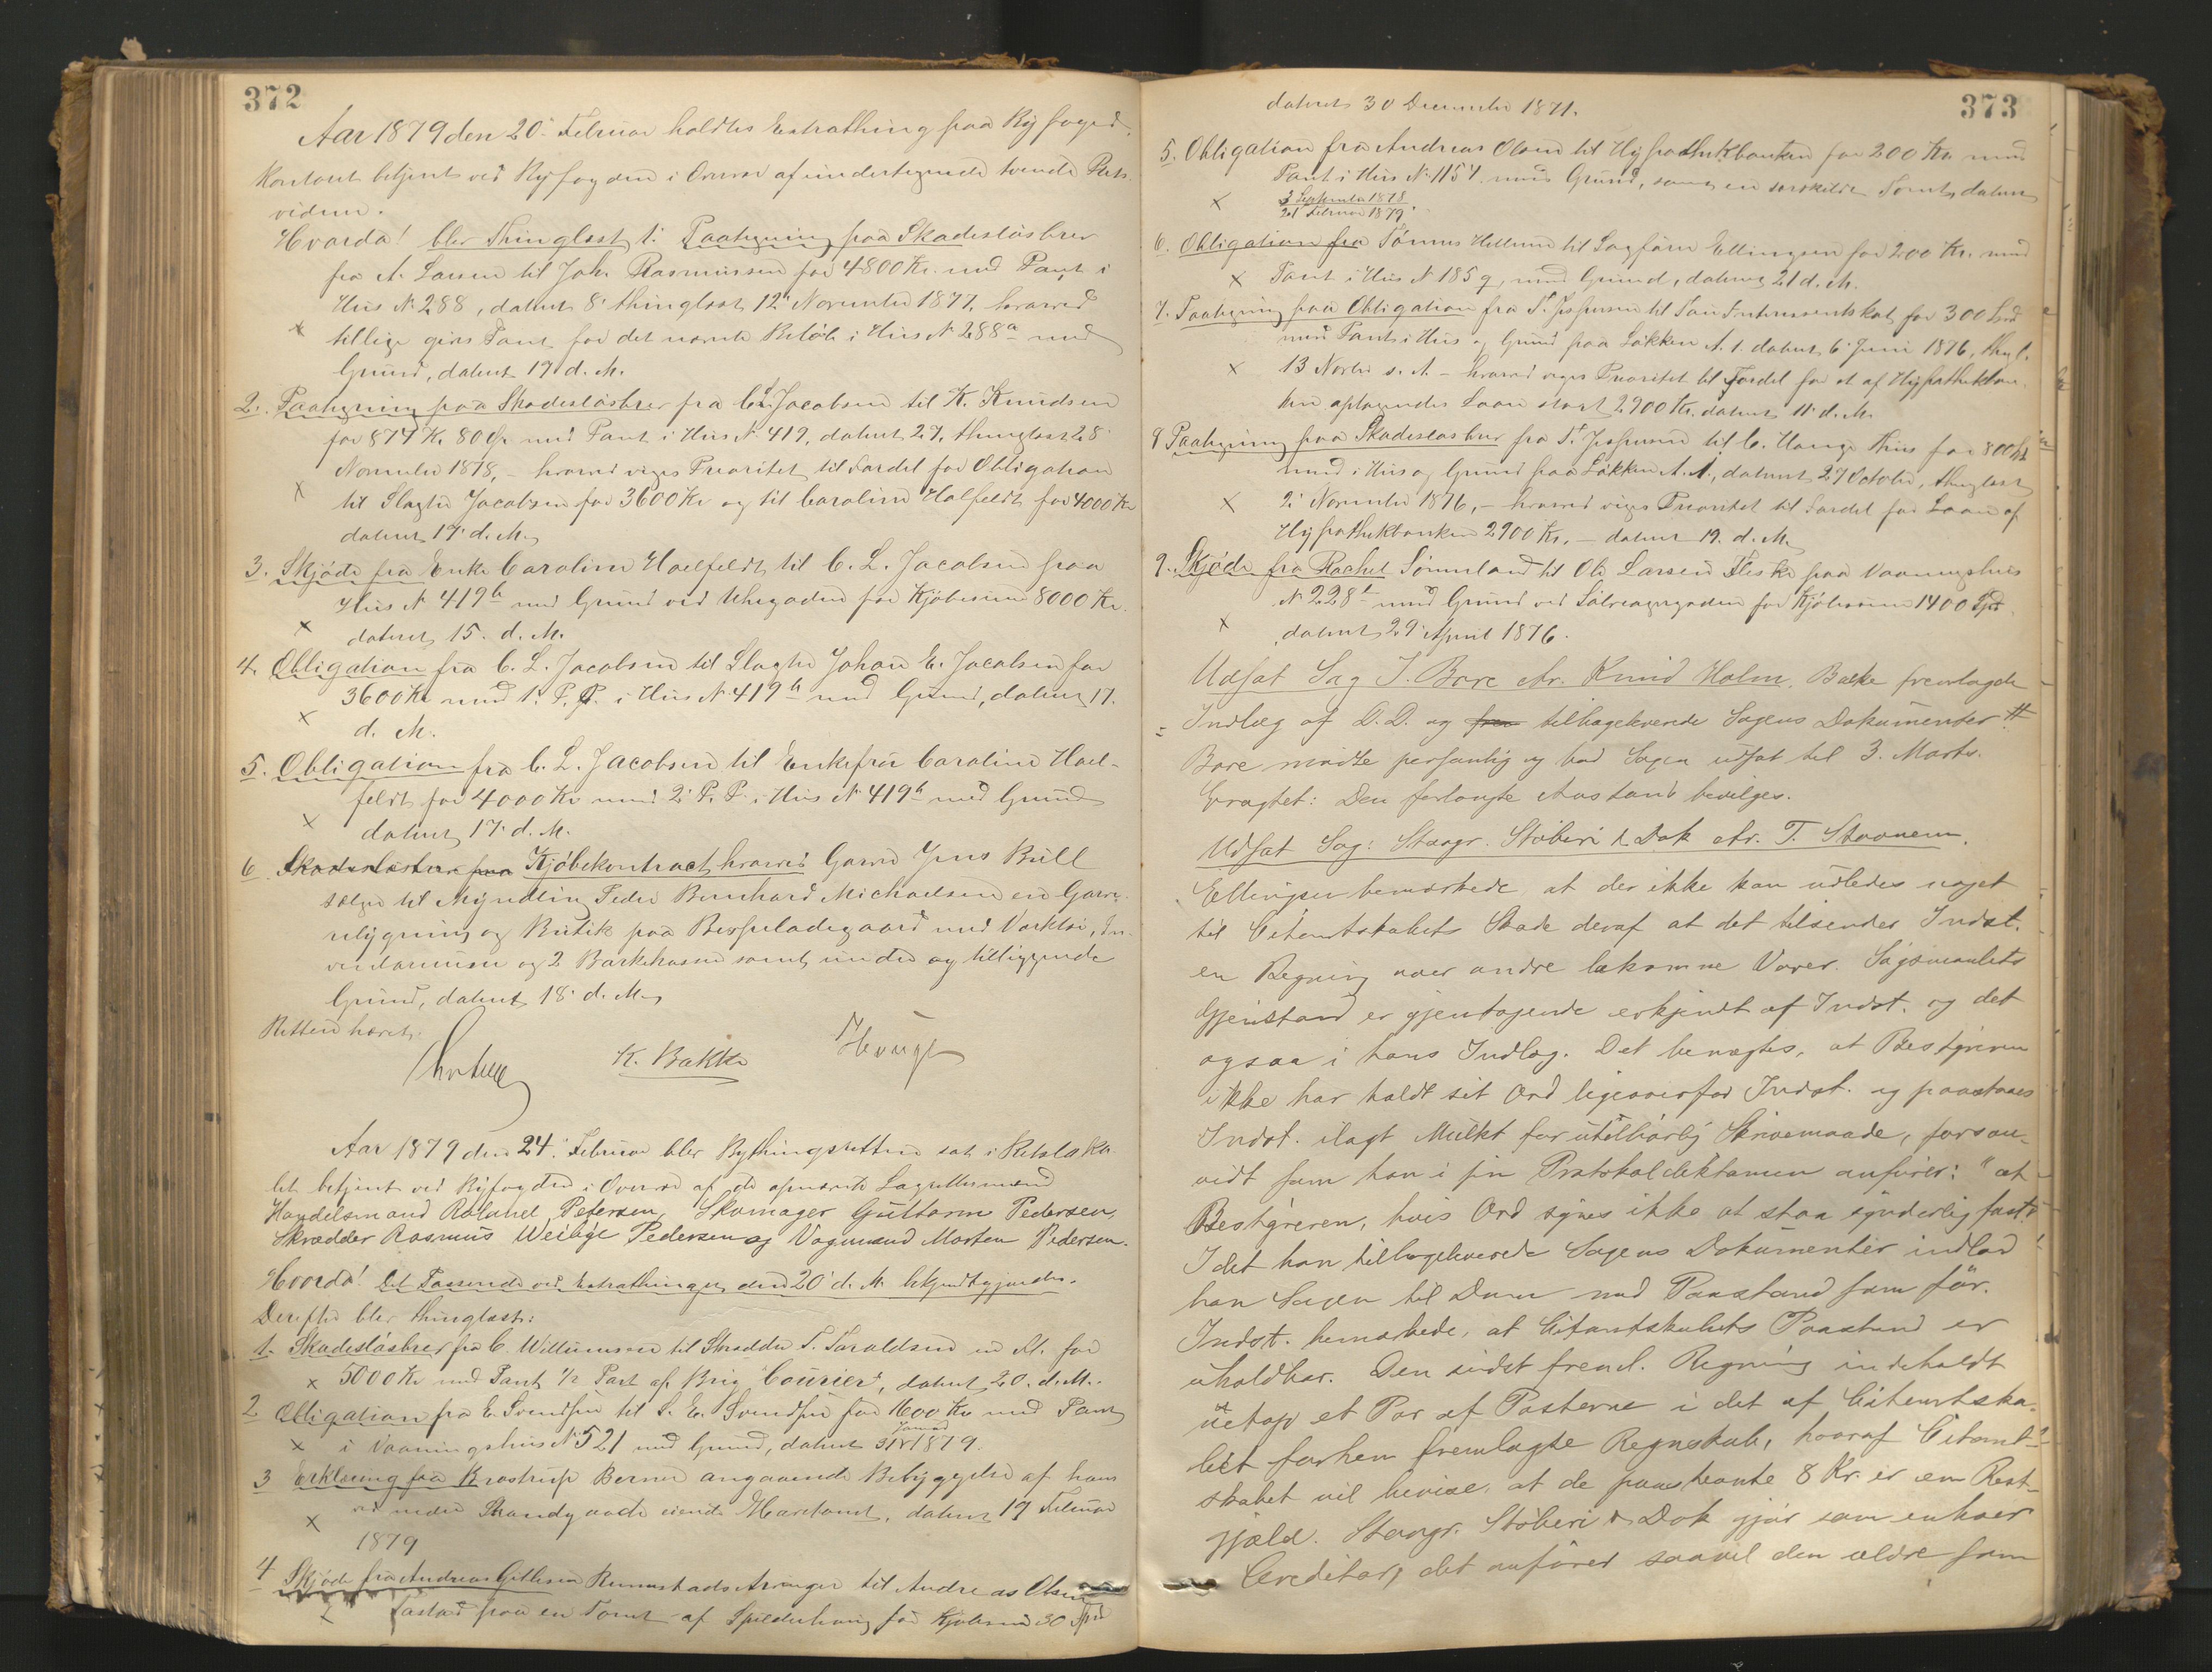 372
Aar 1879 den 20' Februar holdtes Extrathing paa Byfoged-
kontoret betjent ved Byfogden i Overvær af undertegnede tvende Rets-
vidner.
Hvorda! blev Thinglæst 1: Paategning paa Skadesløsbrev
fra A. Larsen til Johs Rasmussen for 4800 Kr. med Pant i
Hus N. 288, dateret 8' thinglæst 12' November 1877, hvorved
x tillige gives Pant for det nævnte Beløb i Hus N 288a med
Grund, dateret 19 d. M.
2. Paategning paa Skadesløsbrev fra C. L. Jacobsen til K. Knudsen
for 874 Kr. 80 Øre med Pant i Hus N. 419, dateret 27, thinglæst 28
November 1878, - hvorved viges Prioritet til Fordel for Obligation
x til Slagter Jacobsen for 3600 Kr og til Caroline Hælfeldt for 4000 Kr
dateret 17' d. M.
3. Skjøde fra Enke Caroline Haelfeldt til C. L. Jacobsen paa
Hus N 419b med Grund ved Uhregaden for Kjøbesum 8000 Kr.
x dateret 15. d. M.
4. Obligation fra C. L. Jacobsen til Slagter Johan E. Jacobsen for
3600 Kr med 1. P. P. i Hus N 419b med Grund, dateret 17.
x d. M.
5. Obligation fra C. L. Jacobsen til Enkefru Caroline Hael-
feldt for 4000 Kr med 2' P. P. i Hus N 419b med Grund
x dateret 17' d. M.
6 Skadesløsbrev fra Kjøbekontract hvorved Garver Jens Bull
sælger til Myndling Peder Bernhard Michaelsen en Garve-
ribygning og Butik paa Bespeladegaard med Værktøi, In-
ventarium og 2 Barkekasser samt under og tilliggende
Grund, dateret 18' d. M.
Retten hævet.
K. Bakke Houge
Aar 1879 den 24' Februar blev Bythingsretten sat i Retsloka-
let betjent ved Byfogden i Overvær af de opnævnte Lagrettemænd
Handelsmand Rolauel Petersen, Skomager Guttorm Pedersen,
Skrædder Rasmus Weibye Pedersen og Vognmand Morten Pedersen.
Hvorda! Det Passerede ved Extrathinget den 20' d. M. bekjendtgjordes.
Derefter blev thinglæst:
1. Skadesløsbrev fra C. Willumsen til Skrædder T. Taraldsen en Fl. for
x 5000 Kr med Pant 1/2 Part af Brig "Courier", dateret 20. d. M.
2 Obligation fra E. Svendsen til S. E. Svendsen for 1600 Kr med Pant
x i Vaaningshus N. 521 med Grund, dateret 31 Januar 1879.
3 Erklæring fra Krostrup Berner angaaende Bebyggelse af hans
x ved nedre Strandgade eiende Havetomt, dateret 19 Februar
1879
4 Skjøde fra Andreas Gitlesen Rennestads Arvinger til Andreas Olsen
x Tastad paa en Tomt af Spilderhaug for Kjøbesum 30 Spd
373
dateret 30 December 1871.
5. Obligation fra Andreas Olsen til Hypothekbanken for 200 Kr. med
Pant i Hus N. 1154 med Grund, samt en særskildt Tomt, dateret
x 3 September 1878
21 Februar 1879.
6. Obligation fra Tønnes Hellum til Sagfører Ellingsen for 200 Kr. med
x Pant i Hus N 185 g, med Grund, dateret 21 d. M.
7. Paategning paa Obligation fra T. Jespersen til Tau Interessentskab for 300 Spd
med Pant i Hus og Grund paa Løkken N. 1. dateret 6' Juni 1876, thgl.
x 13 Novbr s. A. - hvorved viges Prioritet til Fordel for et af Hypothekban-
ken optagendes Laan stort 2900 Kr. dateret 11' d. M.
8 Paategning paa Skadesløsbrev fra T. Jespersen til C. Hauge Thiis for 800 Spd
med i Hus og Grund paa Løkken N. 1., dateret 27 October, thinglæst
x 2' November 1876, - hvorved viges Prioritet til Fordel for Laan af
Hypothekbanken 2900 Kr. - dateret 19. d. M.
9. Skjøde fra Rachel Tømmeland til Ole Larsen Fiske paa Vaaningshus
N 228 med Grund ved Sølveagergaden for Kjøbesum 1400 Spd
x dateret 29' April 1876.
Udsat Sag J. Bore Av. Knud Holm. Bakke fremlagde
Indlæg af D. D. og frem tilbageleverede Sagens Dokumenter #
Bore mødte personlig og bad Sagen udsat til 3. Marts.
Eragtet: Den forlangte Anstand bevilges.
Udsat Sag: Stavgr. Støberi & Dok Av. T. Stornem.
Ellingsen bemærkede, at der ikke kan udledes noget
til Citantskabets Skade deraf at det tilsender Indst.
en Regning over andre bekomne Varer. Søgsmaalets
Gjenstand er gjentagende erkjendt af Indst. og det
ogsaa i hans Indlæg. Det benægtes, at Bestyreren
ikke har holdt sit Ord ligeoverfor Indst. og paastaaes
Indst. ilagt Mulkt for utilbørlig Skrivemaade, forsaa-
vidt som han i sin Protokoldiktamen anfører: "at
Bestyreren, hvis Ord synes ikke at staa synderlig fast".
Idet han tilbageleverede Sagens Dokumenter indlod
han Sagen til Dom med Paastand som før.
Indst. bemærkede, at Citantskabets Paastand er
uholdbar. Den sidst freml. Regning indeholdt
netop et Par af Posterne i det af Citantska-
bet forhen fremlagte Regnskab, hvoraf Citant-
skabet vil bevise, at de paastævnte 8 Kr. er en Rest-
gjæld. Stavgr. Støberi & Dok gjør som enhver
Creditor, det anfører saavel den ældre som